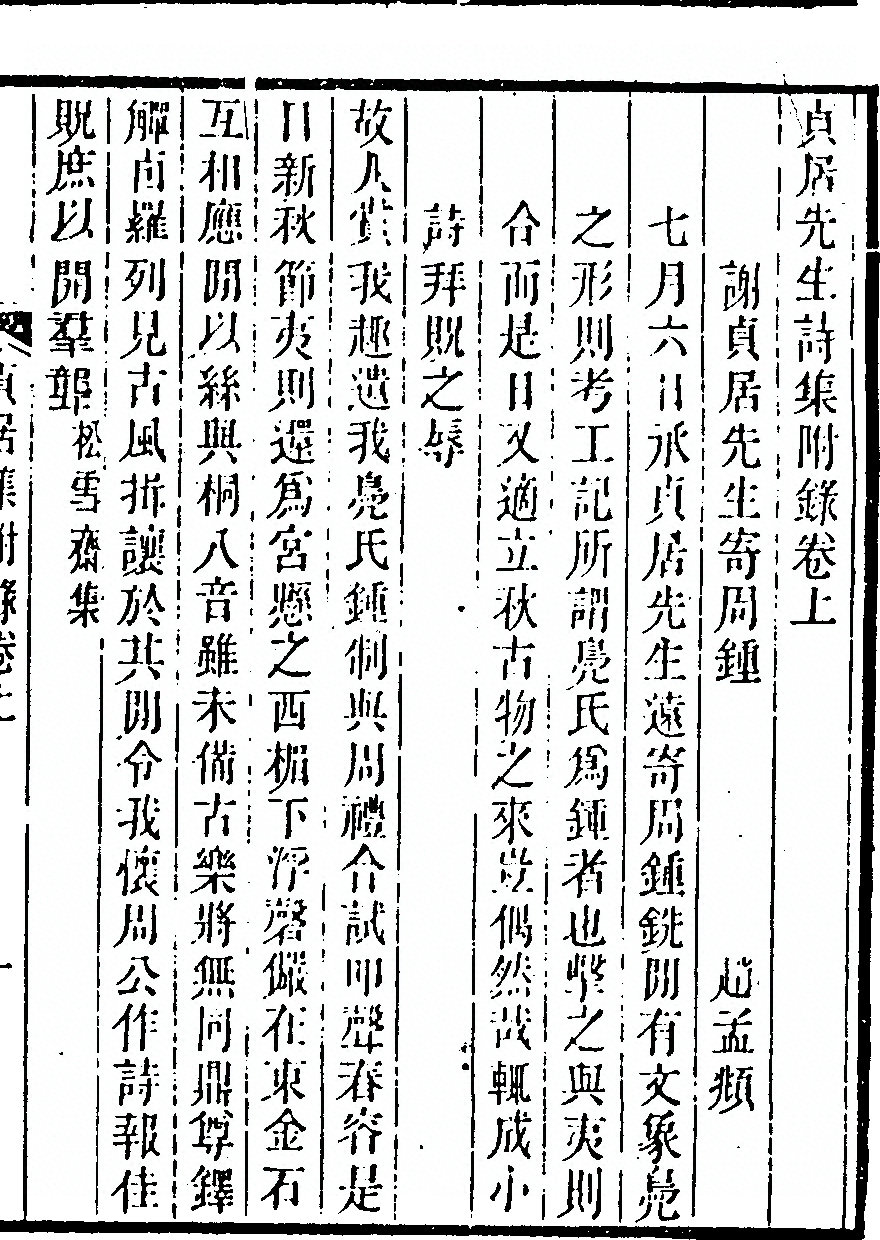 貞居先生詩集附錄卷上
謝貞居先生寄周鍾　趙孟頫
七月六日承貞居先生遠寄周鍾銑間有文象鳧
之形則考工記所謂鳧氏爲鍾者也擊之與夷則
合而是日又適立秋古物之來豈偶然哉輒成小
詩拜貺之辱
故人賞我趣遺我鳧氏鍾制與周禮合試叩聲舂容是
日新秋節夷則還爲宮懸之西楣下浮磬儼在東金石
互相應間以絲與桐八音雖未備古樂將無同鼎尊鐸
觶卣羅列見古風揖讓於其間令我懷周公作詩報佳
貺庶以開羣蒙松雪齋集
貞居集附錄卷上
一